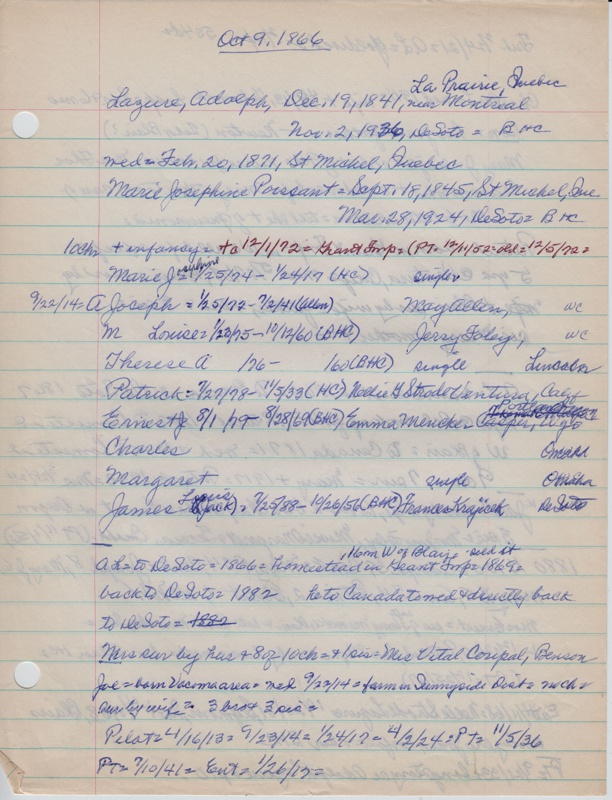 Oct 9, 1866
La Prairie, Quebec
Lazure, Adolph, Dec. 19, 1841, near Montreal
Nov. 2, 1936, DeSoto = BHC
med = Feb. 20, 1871, St Michel, Quebec
Marie Josephine Poissant = Sept. 18, 1845, St Michel, Que
Mar. 28, 1924, DeSoto = BHC
10ch = + infancy = to 12/1/72 = Grant Twp = (PT = 12/11/52 = old = 12/5/72 =
Marie Josephine 1/25/74 - 1/24/17 (HC) single
9/22/14 = A Joseph = 1/25/77 - 7/2/41 (allen) May Allen, WC
M Louise = 1/23/75 - 10/12/60 (BHC) Jerry Foley, WC
Therese A /76 - /60 (BHC) single Lincoln
Patrick = 7/27/78 - 11/5/33 (HC) Nellie G Strode Ventura, Calif
Ernest J 8/1/79 - 8/28/69 (BHC) Emma Mencke Casper, Wyo
Charles Omaha
Margaret single Omaha
James Louis (Jack) = 7/25/88 - 10/26/56 (BHC) Frances Krajicek DeSoto
, 16 m W of Blair = sed it
A L = to DeSoto = 1866 = homestead in Grant Twp = 1869 =
back to DeSoto = 1882 he to Canada to med & directly back
to DeSoto = 1882
Mrs sur by hus + 8 of 10ch = + 1 sis = Mrs Vital Coripal, Benson
Joe = born Vacoma area = med 9/22/14 = farm in Sunnyside Dist = no ch =
sur by wife = 3 bro + 3 sis =
Pilot = 4/16/13 = 9/23/14 = 1/24/17 = 4/2/24 = PT = 11/5/36
PT = 7/10/41 = Ent = 1/26/12 =